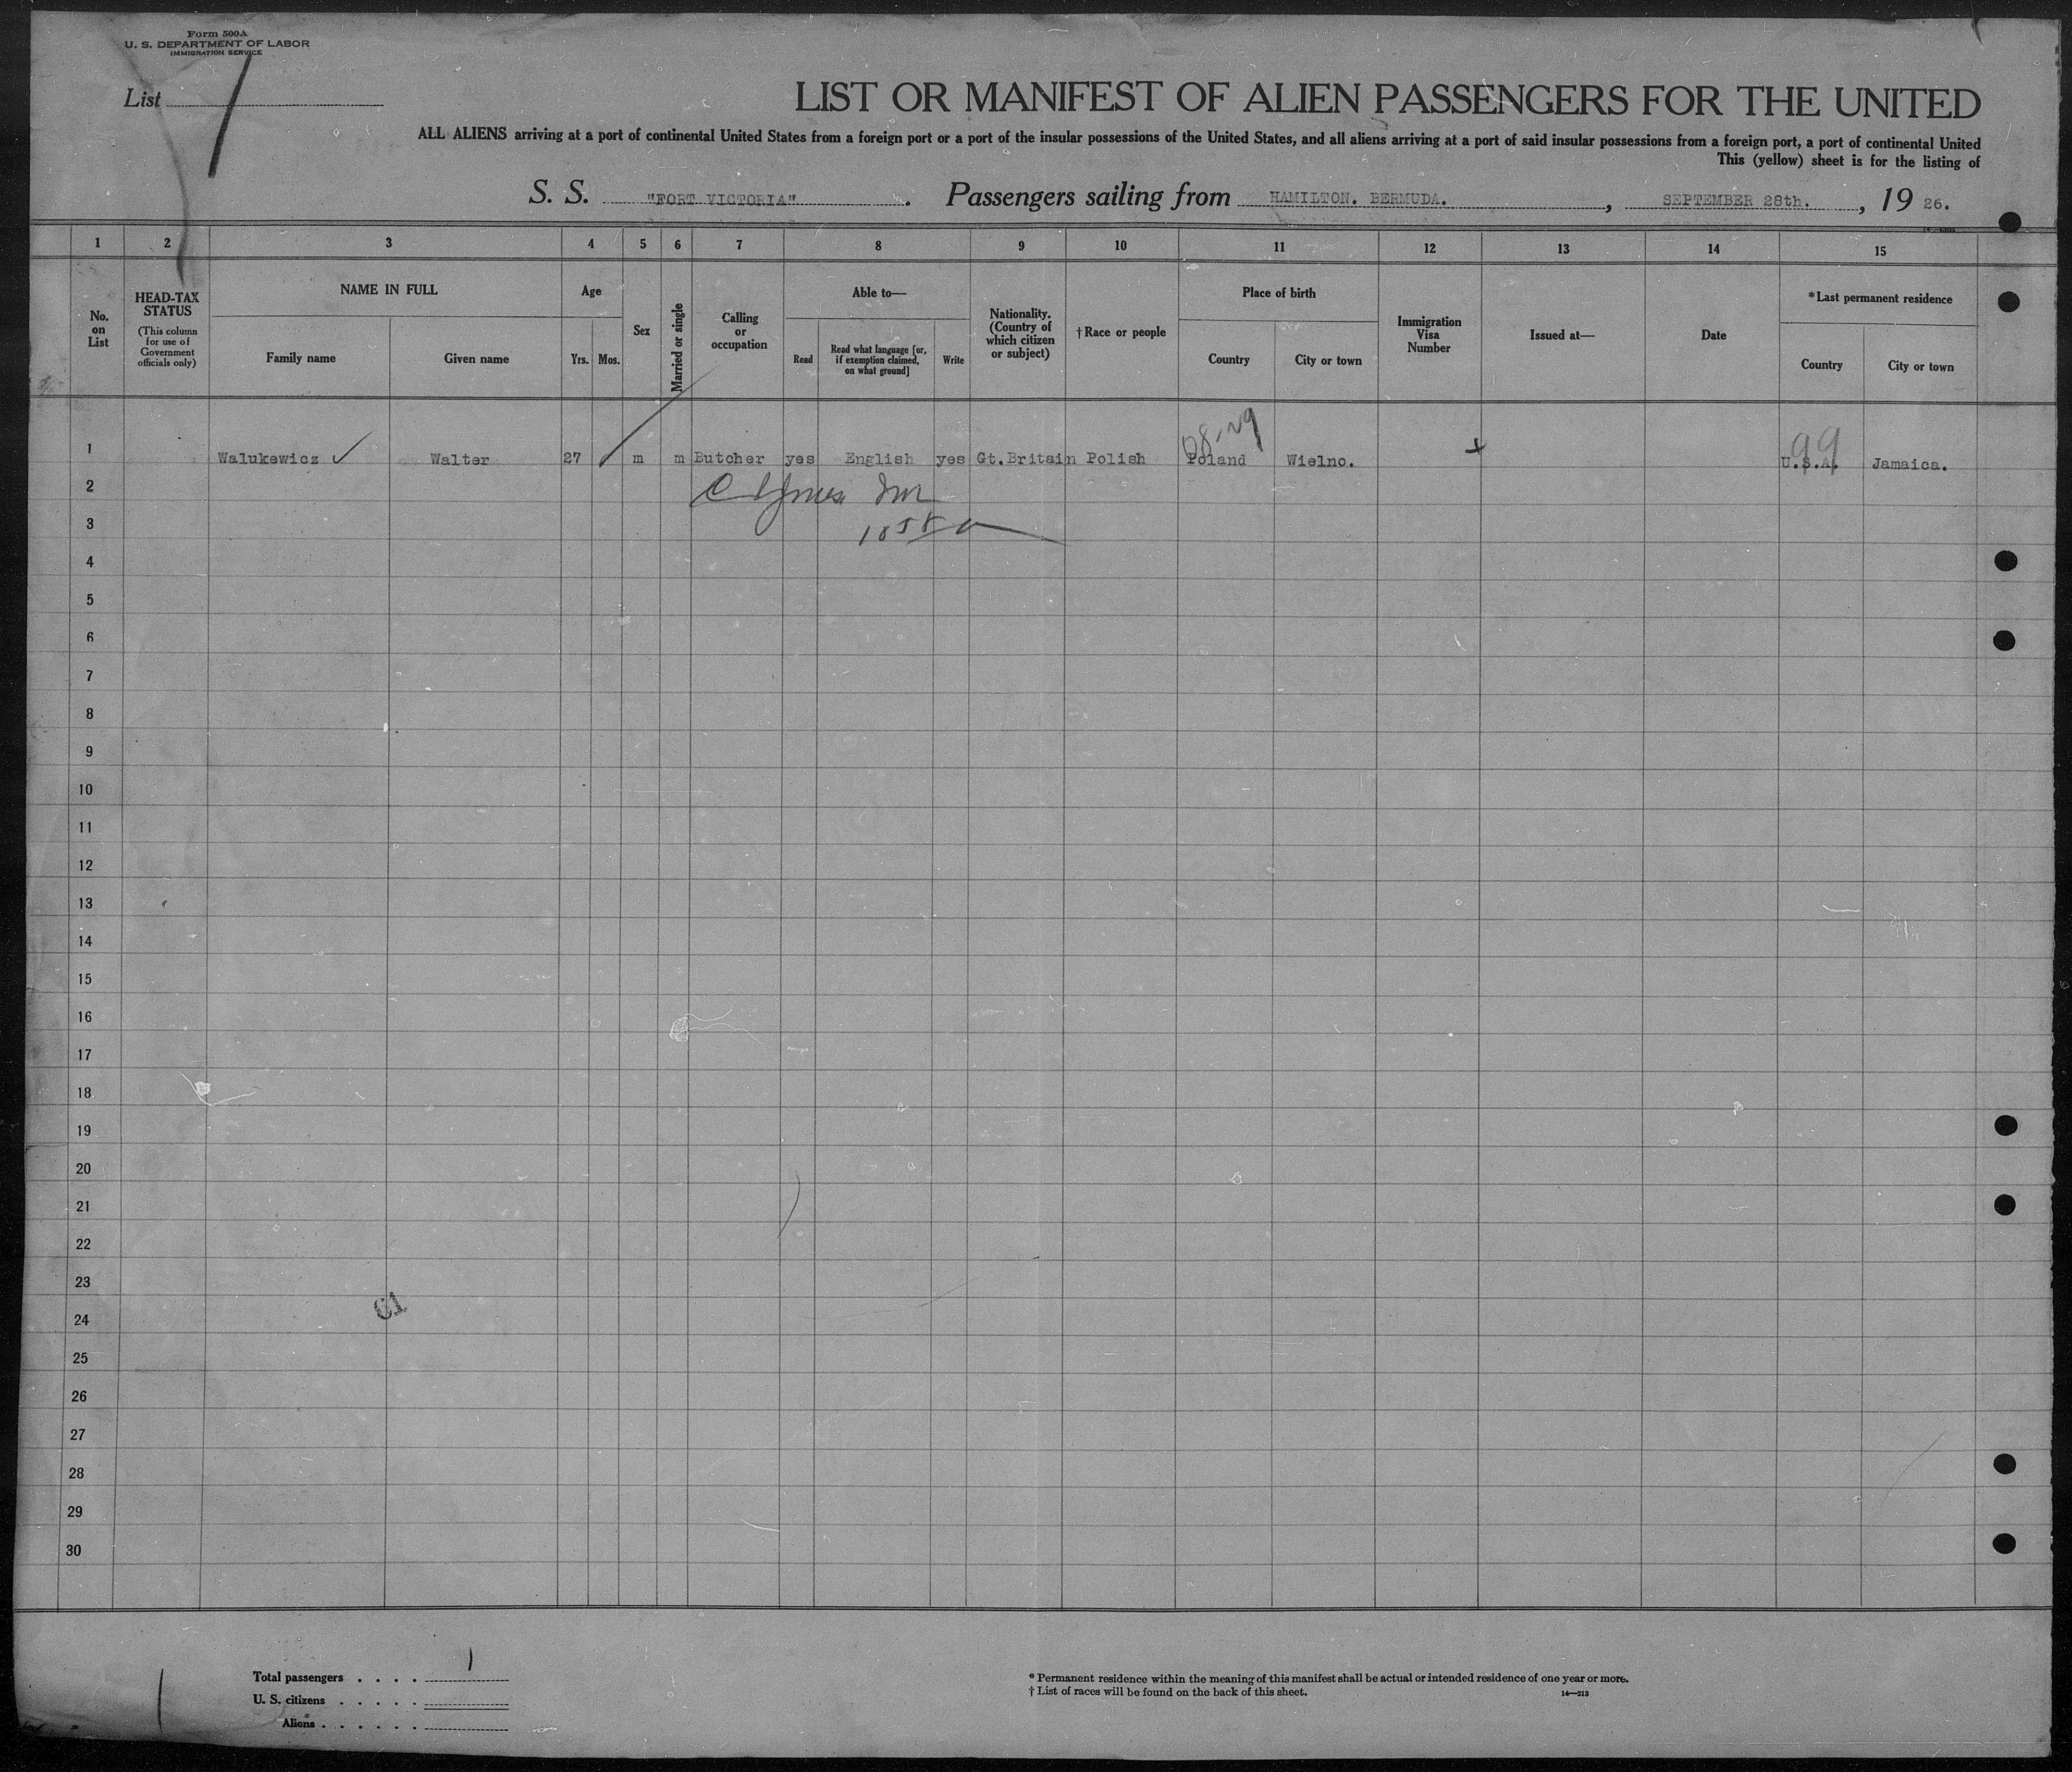 Form 500A
U. S. DEPARTMENT OF LABOR
IMMIGRATION SERVICE
List
LIST OR MANIFEST OF ALIEN PASSENGERS FOR THE UNITED
ALL ALIENS arriving at a port of continental United States from a foreign port or a port of the insular possessions of the United States, and all aliens arriving at a port of said insular possessions from a foreign port, a port of continental United
This (yellow) sheet is for the listing of
S. S. "FORT VICTORIA" . Passengers sailing from HAMILTON. BERMUDA. , SEPTEMBER 28th. , 19 26.
1 2 3 4 5 6 7 8 9 10 11 12 13 14 15
No. on List
HEAD-TAX STATUS
(This column for use of Government officials only)
NAME IN FULL
Family name Given name
Age
Yrs. Mos.
Sex
Married or single
Calling or occupation
Able to—
Read
Read what language [or, if exemption claimed, on what ground]
Write
Nationality. (Country of which citizen or subject)
†Race or people
Place of birth
Country City or town
Immigration Visa Number
Issued at—
Date
*Last permanent residence
Country City or town
99
1 Walukewicz ✓ Walter 27 m m Butcher yes English yes Gt.Britain Polish Poland Wielno. U.S.A. Jamaica.
2
3
4
5
6
7
8
9
10
11
12
13
14
15
16
17
18
19
20
21
22
23
61
24
25
26
27
28
29
30
Total passengers . . . . 1
U. S. citizens . . . . .
Aliens . . . . . .
* Permanent residence within the meaning of this manifest shall be actual or intended residence of one year or more.
† List of races will be found on the back of this sheet. 14—213